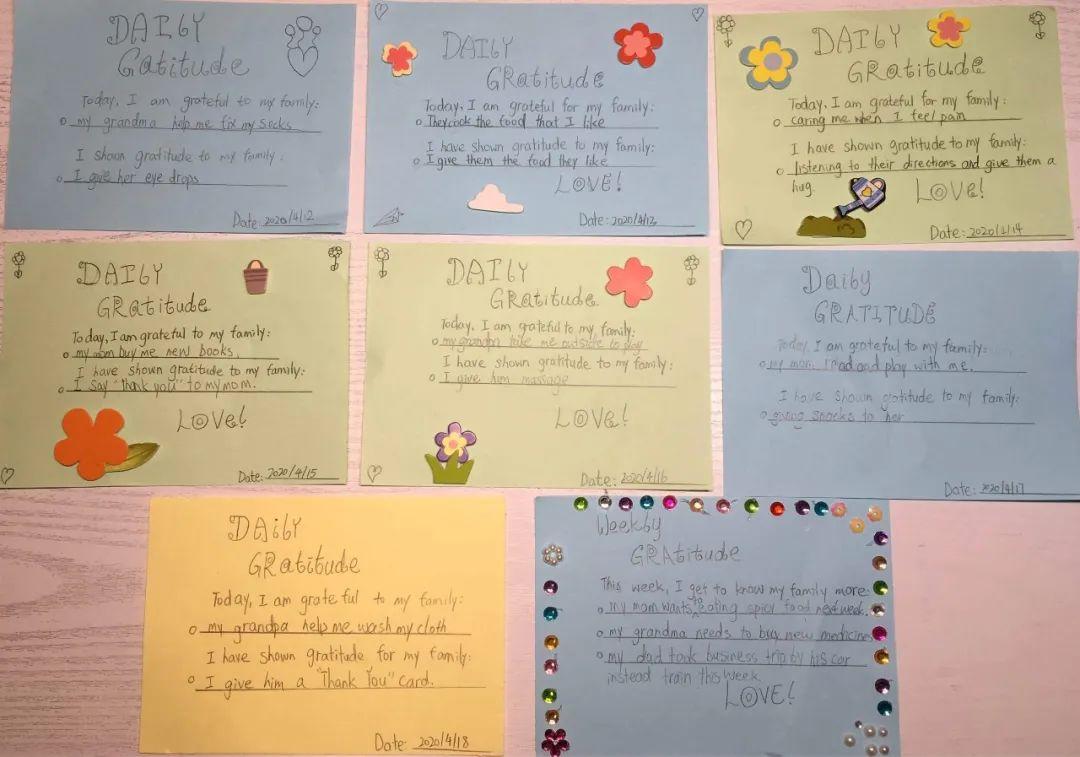 DAILY
Gatitude
Today, I am grateful to my family:
my grandma help me fix my socks
I shown gratitude to my family:
I give her eye drops
Date: 2020/4/12
DAILY
GRatitude
Today, I am grateful for my family:
They cook the food that I like
I have shown gratitude to my family:
I give them the food they like
LOVE!
Date: 2020/4/13
DAILY
GRatitude
Today, I am grateful for my family:
caring me when I feel pain
I have shown gratitude to my family:
listening to their directions and give them a
hug.
LOVE!
Date: 2020/4/14
DAILY
GRatitude
Today, I am grateful to my family:
my mom buy me new books.
I have shown gratitude to my family:
I say "thank you" to my mom.
LOVe!
Date: 2020/4/15
DAILY
GRatitude
Today, I am grateful to my family:
my grandpa take me outside to play
I have shown gratitude to my family:
I give him massage
LOVE!
Date: 2020/4/16
Daily
GRATITUDE
Today, I am grateful to my family:
my mom read and play with me.
I have shown gratitude to my family:
giving snacks to her
Date: 2020/4/17
DAily
GRatitude
Today, I am grateful to my family:
my grandpa help me wash my cloth
I have shown gratitude for my family:
I give him a "Thank You" card.
Date: 2020/4/18
Weekly
GRAtitude
This week, I get to know my family more:
my mom wants to eating spicy food next week.
my grandma needs to buy new medicines
my dad took business trip by his car
instead train this week
LOVE!